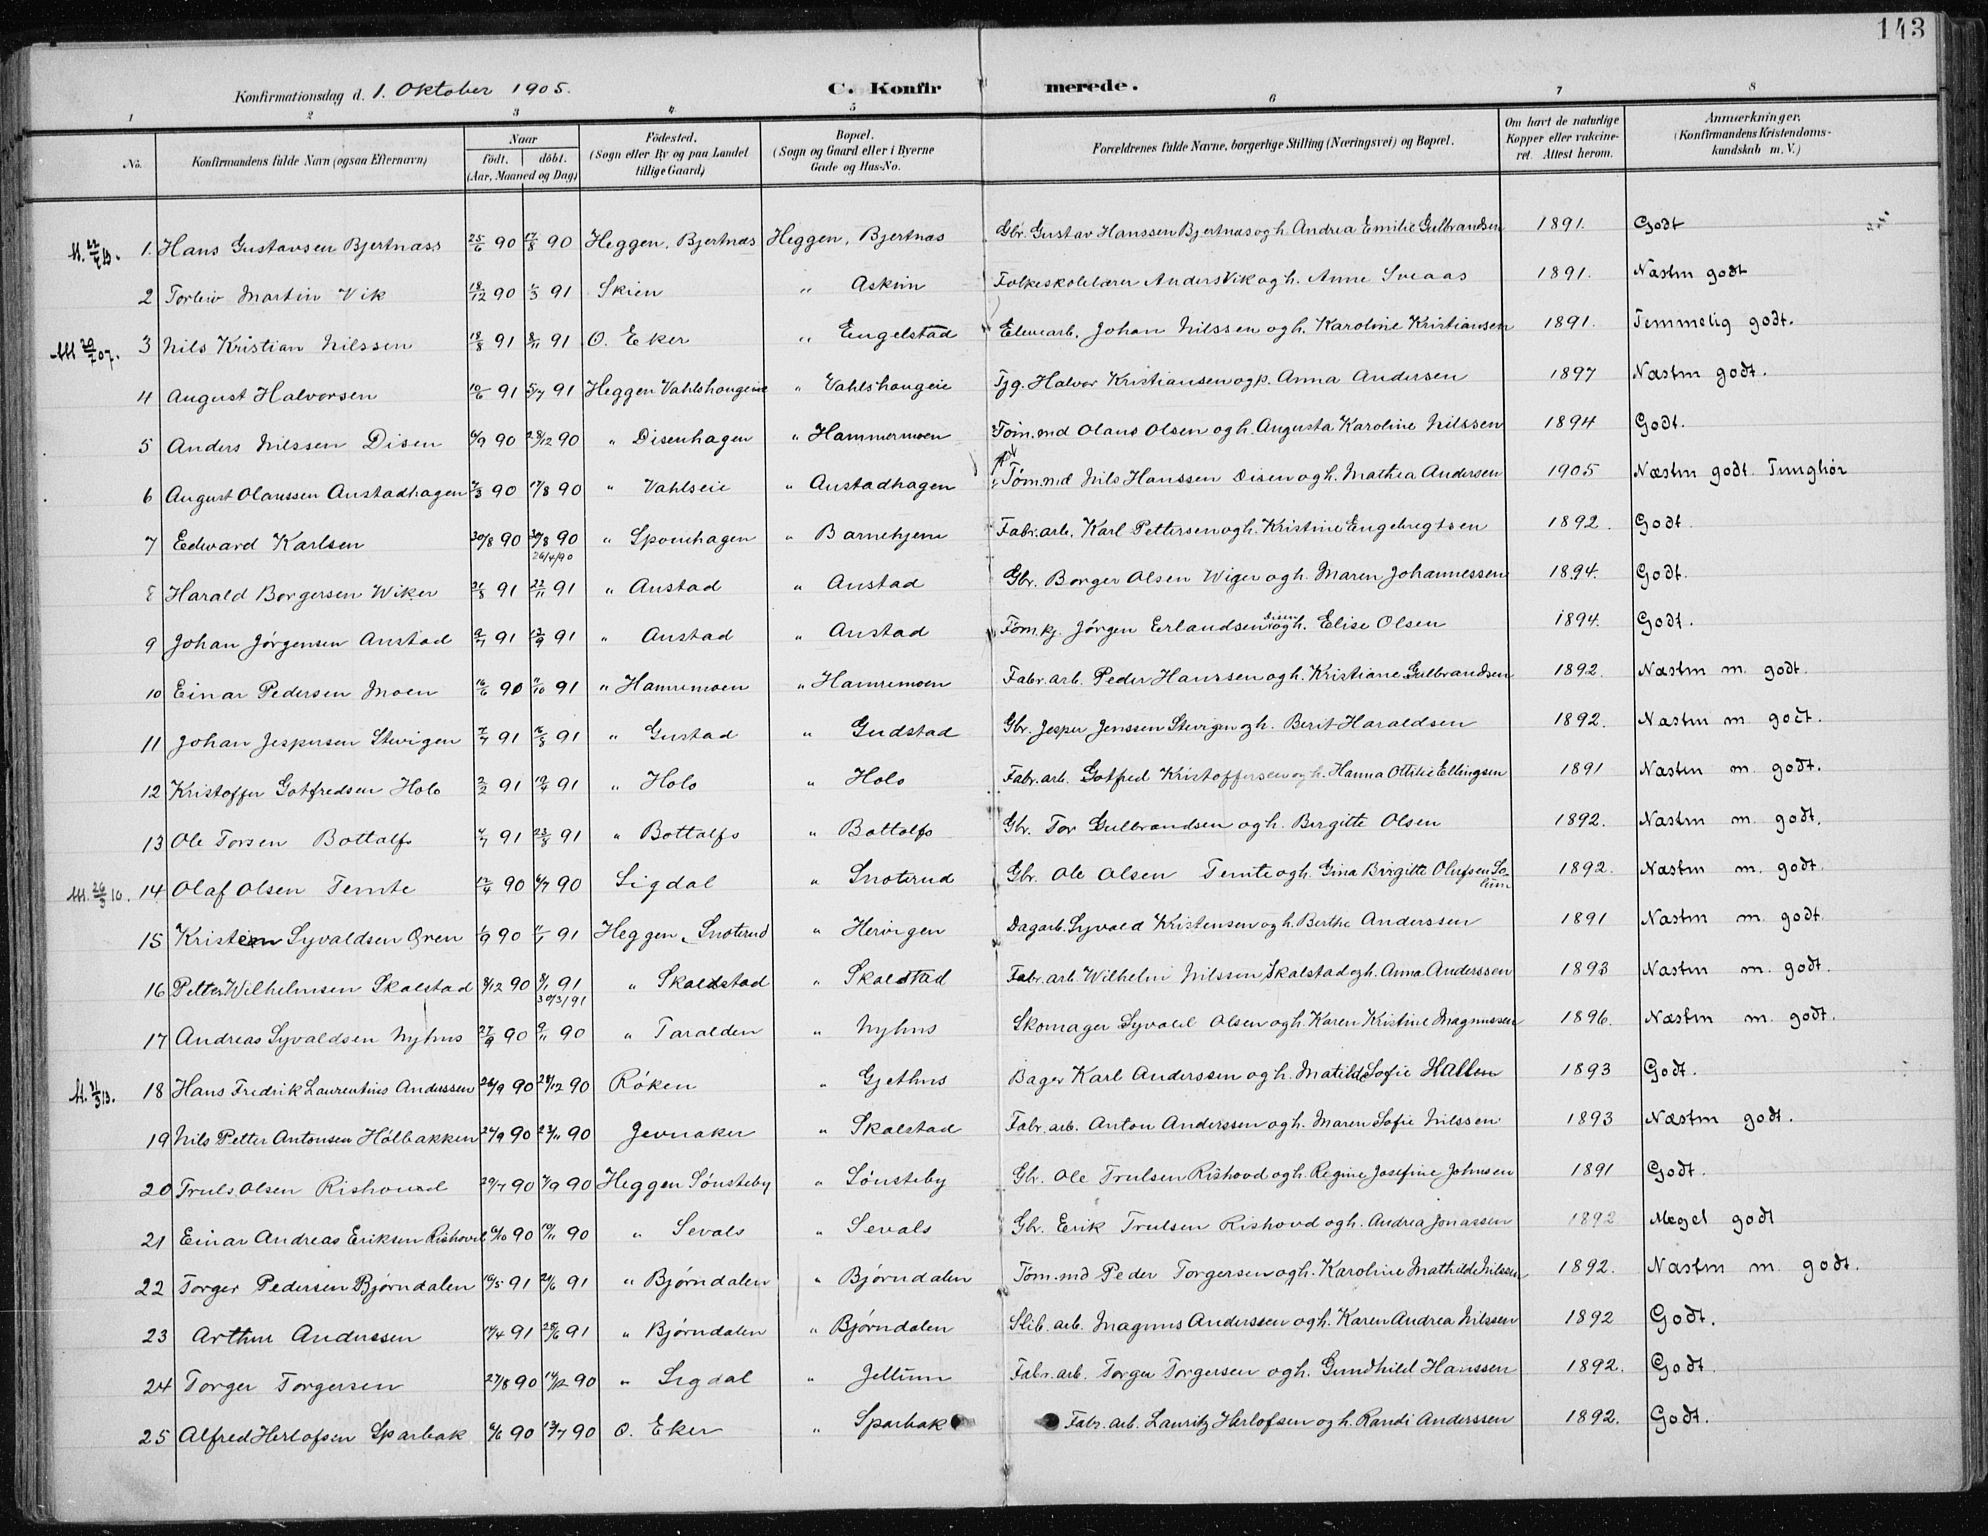 143
Konfirmationsdag d. 1. Oktober 1905. C. Konfirmerede.
1 2 3 4 5 6 7 8
No. Konfirmandens fulde Navn (ogsaa Efternavn) Naar født. døbt. (Aar, Maaned og Dag) Fødested. (Sogn eller By og paa Landet tillige Gaard) Bopæl. (Sogn og Gaard eller i Byerne Gade og Hus-No. Forældrenes fulde Navne, borgerlige Stilling (Næringsvei) og Bopæl. Om havt de naturlige Kopper eller vaccineret. Attest herom. Anmærkninger. (Konfirmandens Kristendomskundskab m. V.)
1. Hans Gustavsen Bjertnæss 25/6 90 17/8 90 Heggen, Bjertnæs Heggen, Bjertnæs Gbr. Gustav Hanssen Bjertnæs og h. Andrea Emilie Gulbrandsen 1891. Godt
2 Torleiv Martin Vik 18/12 90 1/3 91 Skien " Askim Folkeskolelærer Anders Vik og h. Anne Sveaas 1891. Næsten godt
M 20/2 07. 3 Nils Kristian Nilssen 18/8 91 8/11 91 Ø. Eker " Engelstad Elevearb. Johan Nilssen og h. Karoline Kristiansen 1891. Temmelig godt.
4 August Halvorsen 10/6 91 5/7 91 Heggen Vahlshougeie " Vahlshougeie Tjg. Halvor Kristiansen og p. Anna Andersen 1897 Næsten godt.
5 Anders Nilssen Disen 6/9 90 28/12 90 " Disenhagen " Hammermoen Tøm.md Olaus Olsen og h. Augusta Karoline Nilssen 1894 Godt.
6 August Olaussen Austadhagen 2/3 90 17/8 90 " Vahlseie " Austadhagen Tøm.md Nils Hanssen Disen og h. Mathea Andersen 1905 Næsten godt Tunghør
7 Edward Karlsen 30/8 90 " Sponehagen " Barnehjem Fabr.arb. Karl Pettersen og h. Kristine Engebregtsen 1892. Godt.
26/4/90
8 Harald Borgersen Wiker 21/8 91 22/11 91 " Austad " Austad Gbr. Borger Olsen Wiger og h. Maren Johannessen 1894. Godt.
9 Johan Jørgensen Austad 2/7 91 13/9 91 " Austad " Austad Tøm.kj. Jørgen Erlandsen og h. Elise Olsen 1894. Godt.
10 Einar Pedersen Moen 16/6 90 11/10 91 " Hamremoen " Hamremoen Fabr.arb. Peder Hanssen og h. Kristiane Gulbrandsen 1892. Næsten m. godt.
11 Johan Jespersen Stevigen 2/7 91 16/8 91 " Gustad " Gudstad Gbr. Jesper Jenssen Stevigen og h. Berit Haraldsen 1892. Næsten m. godt.
12 Kristoffer Gotfredsen Holo 2/2 91 19/4 91 " Holo " Holo Fabr.arb. Gotfred Kristoffersen og h. Hanna Ottilie Ellingsen 1891 Næsten m. godt.
13 Ole Torsen Bottolfs 4/7 91 23/8 91 " Bottolfs " Bottolfs Gbr. Tor Gulbrandsen og h. Birgitte Olsen 1892. Næsten m. godt.
M. 26/3 10. 14 Olaf Olsen Temte 12/4 90 6/7 90 Sigdal " Snoterud Gbr. Ole Olsen Temte og h. Gina Birgitte Olufsen Solum 1892. Næsten m. godt.
15 Kristian Syvaldsen Øren 1/9 90 11/1 91 Heggen, Snoterud " Hervigen Dagarb. Syvald Kristensen og h. Berthe Anderssen 1891 Næsten m. godt.
16 Petter Wilhelmsen Skalstad 8/12 90 8/1 91 " Skalstad " Skalstad Fabr.arb. Wilhelm Nilssen Skalstad og h. Anna Anderssen 1893 Næsten m. godt.
30/3/91
17 Andreas Syvaldsen Nyhus 27/9 90 9/11 90 " Taralden " Nyhus Skomager Syvald Olsen og h. Karen Kristine Magnussen 1896. Næsten m. godt.
18 Hans Fredrik Laurentius Anderssen 26/9 90 28/12 90 Røken " Gjethus Bager Karl Anderssen og h. Matilde Sofie Hallen 1893 Godt.
19 Nils Petter Antonsen Holbakken 24/9 90 23/11 90 Jevnaker " Skalstad Fabr.arb. Anton Anderssen og h. Maren Sofie Nilssen 1893 Næsten godt.
20 Truls Olsen Rishovd 29/7 90 7/9 90 Heggen Sønsteby " Sønsteby Gbr. Ole Trulsen Rishovd og h. Regine Josefine Johnsen 1891 Godt.
21 Einar Andreas Eriksen Rishovd 6/10 90 19/11 90 " Sevals " Sevals Gbr. Erik Trulsen Rishovd og h. Andrea Jonassen 1892 Meget godt
22 Torger Pedersen Bjørndalen 10/5 91 21/6 91 " Bjørndalen " Bjørndalen Tøm.md Peder Torgersen og h. Karoline Mathilde Nilssen 1892. Næsten m. godt.
23 Arthur Anderssen 14/4 91 28/6 91 " Bjørndalen " Bjørndalen Slib.arb. Magnus Anderssen og h. Karen Andrea Nilssen 1892 Godt.
24 Torger Torgersen 27/8 90 14/12 90 " Sigdal " Jellum Fabr.arb. Torger Torgersen og h. Gundhild Hanssen 1892. Godt.
25 Alfred Herlofsen Sparbak 6/6 90 13/7 90 Ø. Eker " Sparbak Fabr.arb. Lauritz Herlofsen og h. Randi Anderssen 1892. Godt.